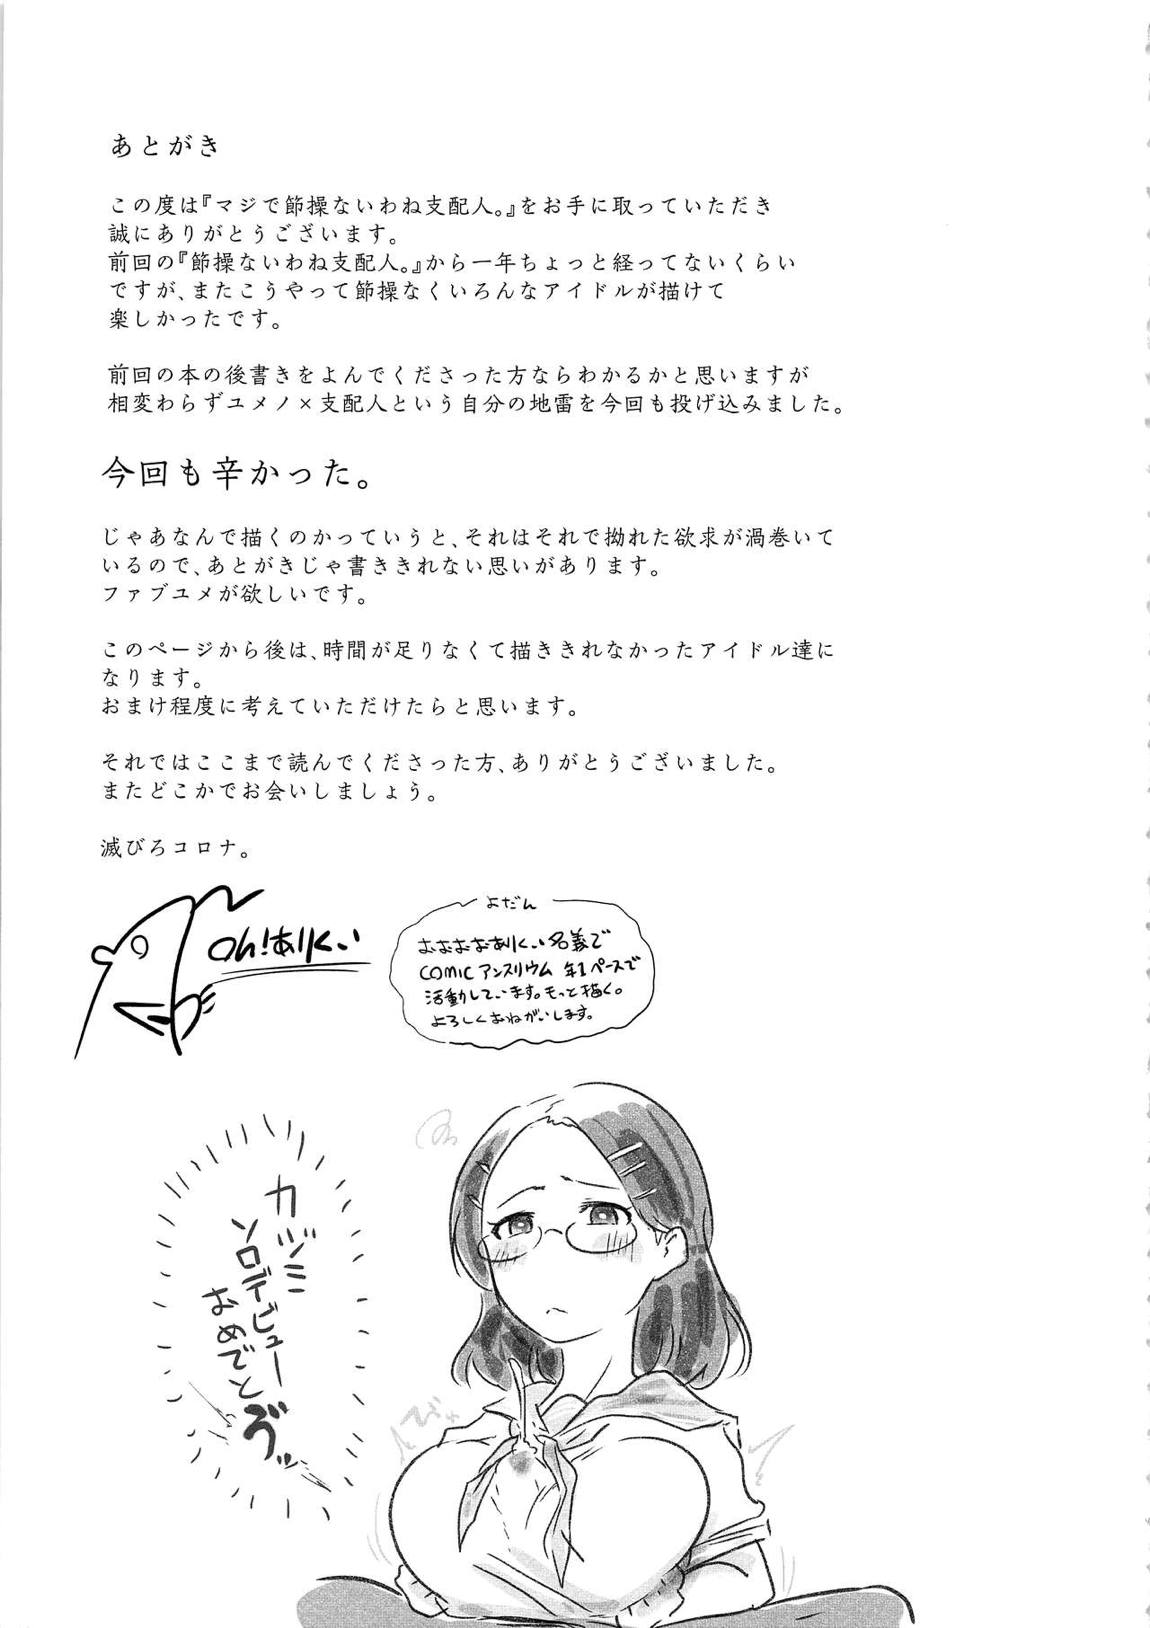 あとがき
この度は『マジで節操ないわね支配人。』をお手に取っていただき
誠にありがとうございます。
前回の『節操ないわね支配人。』から一年ちょっと経ってないくらい
ですが、またこうやって節操なくいろんなアイドルが描けて
楽しかったです。
前回の本の後書きをよんでくださった方ならわかるかと思いますが
相変わらずユメノ×支配人という自分の地雷を今回も投げ込みました。
今回も辛かった。
じゃあなんで描くのかっていうと、それはそれで拗れた欲求が渦巻いて
いるので、あとがきじゃ書ききれない思いがあります。
ファブユメが欲しいです。
このページから後は、時間が足りなくて描ききれなかったアイドル達に
なります。
おまけ程度に考えていただけたらと思います。
それではここまで読んでくださった方、ありがとうございました。
またどこかでお会いしましょう。
滅びろコロナ。
Oh!ありくい
よだん
おおおおありくい名義で
COMICアンスリウム 年1ペースで
活動しています。もっと描く。
よろしくおねがいします。
カヅミ
ソロデビュー
おめでとゔッ